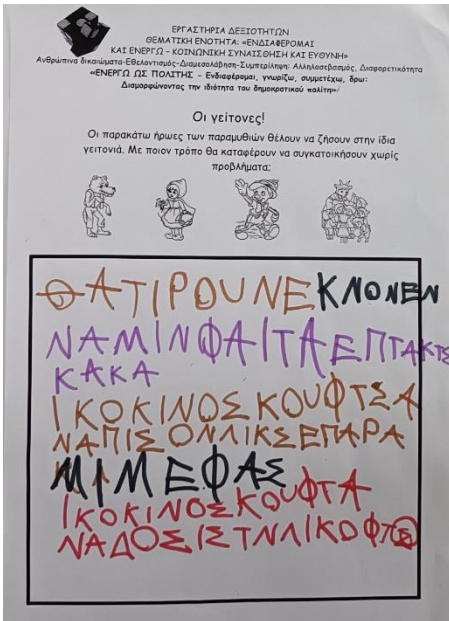 ΕΡΓΑΣΤΗΡΙΑ ΔΕΞΙΟΤΗΤΩΝ
ΘΕΜΑΤΙΚΗ ΕΝΟΤΗΤΑ: «ΕΝΔΙΑΦΕΡΟΜΑΙ
ΚΑΙ ΕΝΕΡΓΩ - ΚΟΙΝΩΝΙΚΗ ΣΥΝΑΙΣΘΗΣΗ ΚΑΙ ΕΥΘΥΝΗ»
Ανθρώπινα δικαιώματα-Εθελοντισμός-Διαμεσολάβηση-Συμπερίληψη: Αλληλοσεβασμός, Διαφορετικότητα
«ΕΝΕΡΓΩ ΩΣ ΠΟΛΙΤΗΣ - Ενδιαφέρομαι, γνωρίζω, συμμετέχω, δρω:
Διαμορφώνοντας την ιδιότητα του δημοκρατικού πολίτη»/
Οι γείτονες!
Οι παρακάτω ήρωες των παραμυθιών θέλουν να ζήσουν στην ίδια
γειτονιά. Με ποιον τρόπο θα καταφέρουν να συγκατοικήσουν χωρίς
προβλήματα;
ΘΑ ΤΙΡΟΥΝΕ ΚΝΟΝΕΝ
ΝΑ ΜΙΝ ΦΑΙ ΤΑ ΕΠΤΑ ΚΤΣ
ΚΑΚΑ
Ι ΚΟΚΙΝΟΣΚΟΥΦΤΣΑ
ΝΑ ΠΙΣ ΟΝ ΛΙΚΣΕΠΑΡΑ
ΜΙ ΜΕ ΦΑΣ
Ι ΚΟΚΙΝΟΣΚΟΥΦΤΑ
ΝΑ ΔΟΣΙ ΣΤΝ ΛΙΚΟ